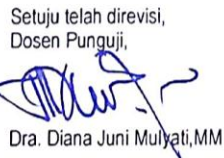 Setuju telah direvisi,
Dosen Punguji,
Dra. Diana Juni Mulyati,MM